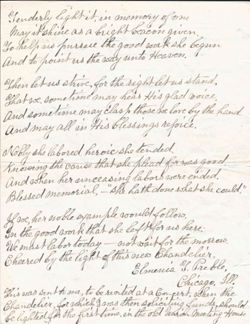 Tenderly light it, in memory of one
May it shine as a bright beacon given
To help us pursue the good work she begun
And to point us the way unto Heaven.
Then let us strive, for the right let us stand,
That we sometime may hear His glad voice,
And sometime may clasp those we love by the hand
And may all in His blessings rejoice.
Nobly she labored heroic she tended
Knowing the cause that she plead for was good
And when her unceasing labors were ended
Blessed memorial, "She hath done what she could."
If we her noble example would follow,
In the good work that she left for us here;
We must labor today — not wait for the morrow
Cheered by the light of this new Chandelier.
Treble,
Chicago, Ill.
This was sent to me, to be recited at a Concert, when the
Chandelier, for which I was then soliciting funds, should
be lighted for the first time, in the old Meeting House